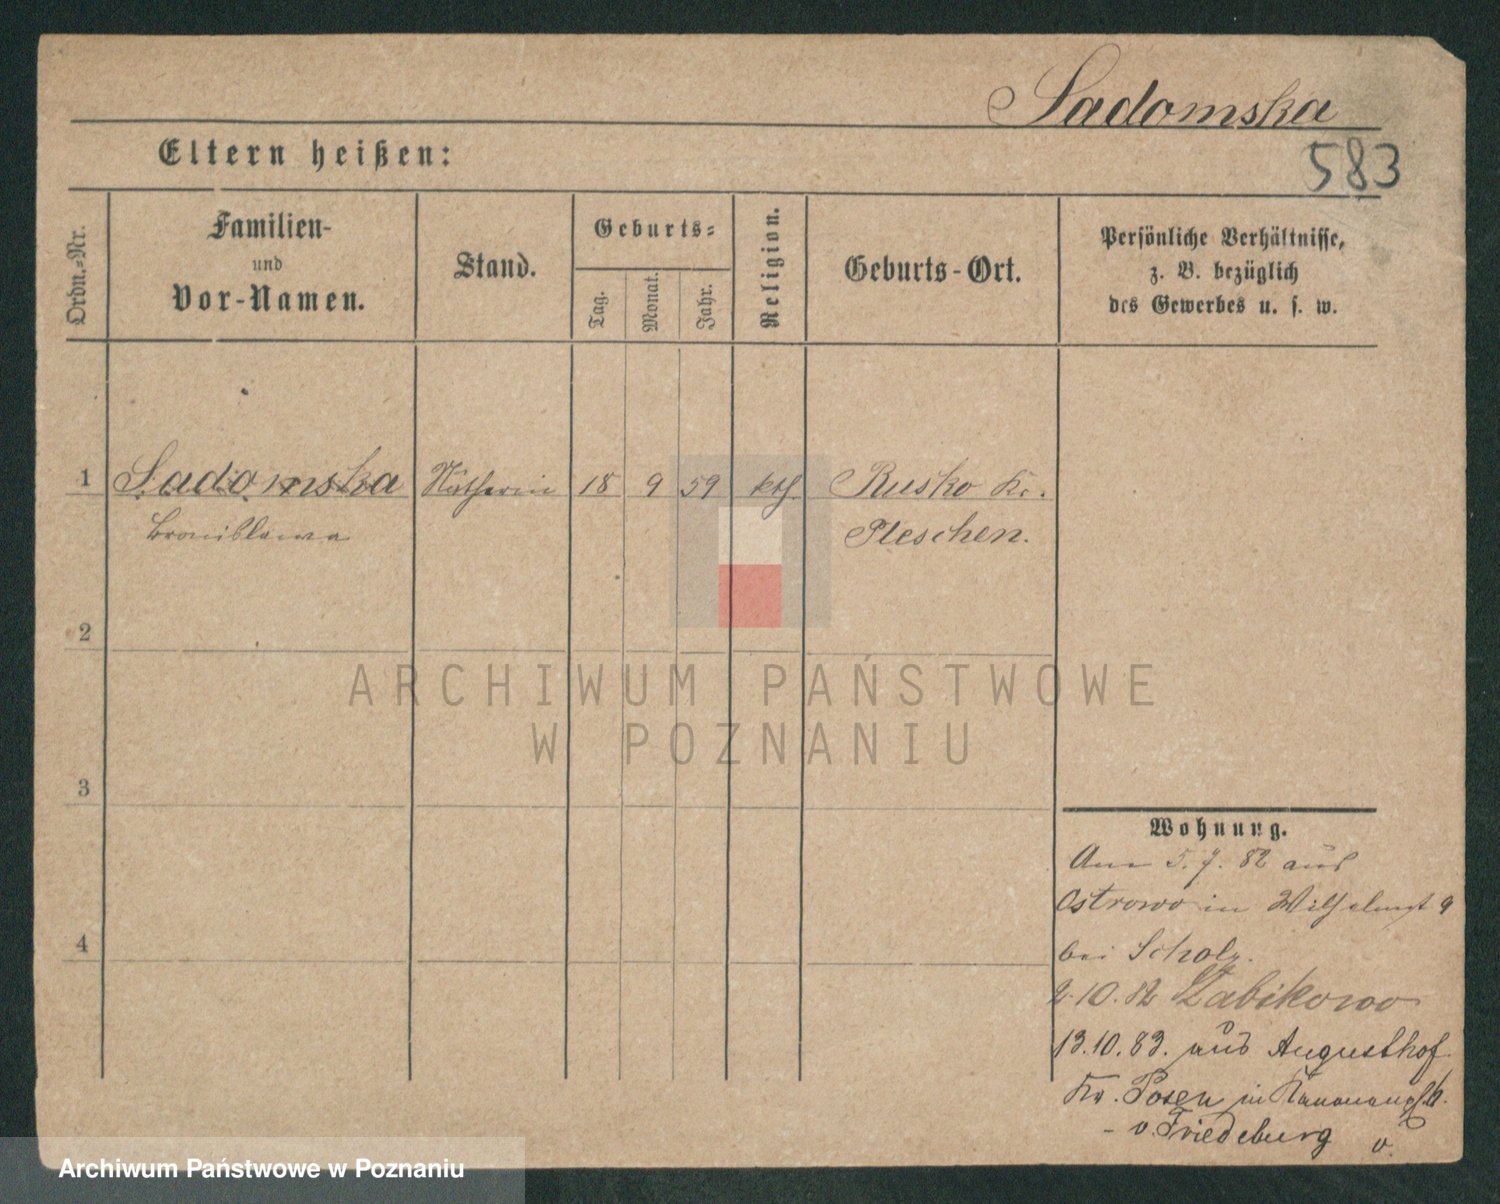 Sadomska
583
Eltern heißen:
Ordn.-Nr.
Familien-
und
Vor-Namen.
Stand.
Geburts-
Tag.
Monat.
Jahr.
Religion.
Geburts-Ort.
Persönliche Verhältnisse,
z. B. bezüglich
des Gewerbes u. s. w.
1 Sadomska Nätherin 18 9 59 kth. Rusko Kr.
Bronislawa Pleschen.
2
3
4
ARCHIWUM PAŃSTWOWE
W POZNANIU
Wohnung.
Am 5. 7. 82 aus
Ostrowo in Wilhelmpl 9
bei Scholz.
2.10.82 Zabikowo
13.10.83. aus Augusthof
Kr. Posen in
- v. Friedeburg v.
Archiwum Państwowe w Poznaniu